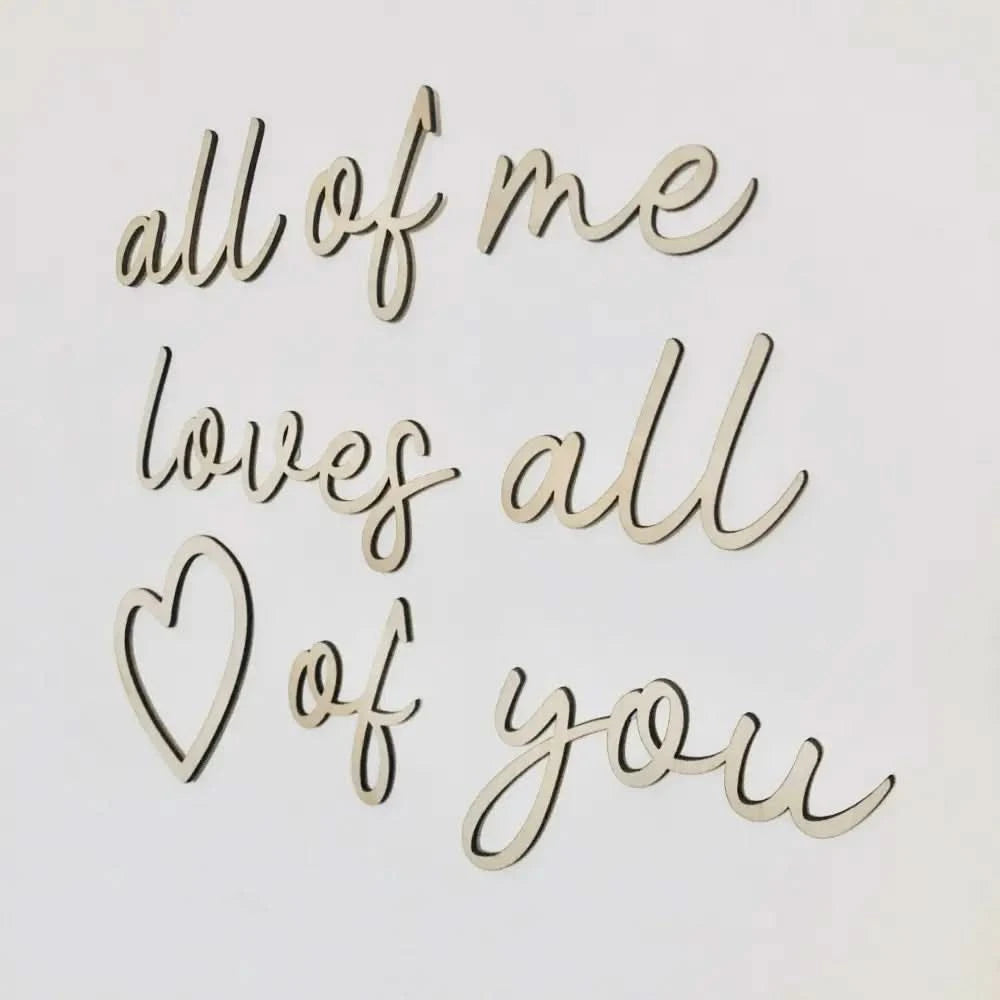 all of me
loves all
of you